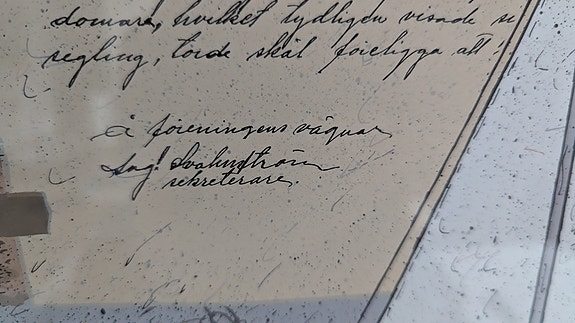 domare, hvilket tydligen visade si
segling, torde skäl föreligga att
å föreningens vägnar
sekreterare.